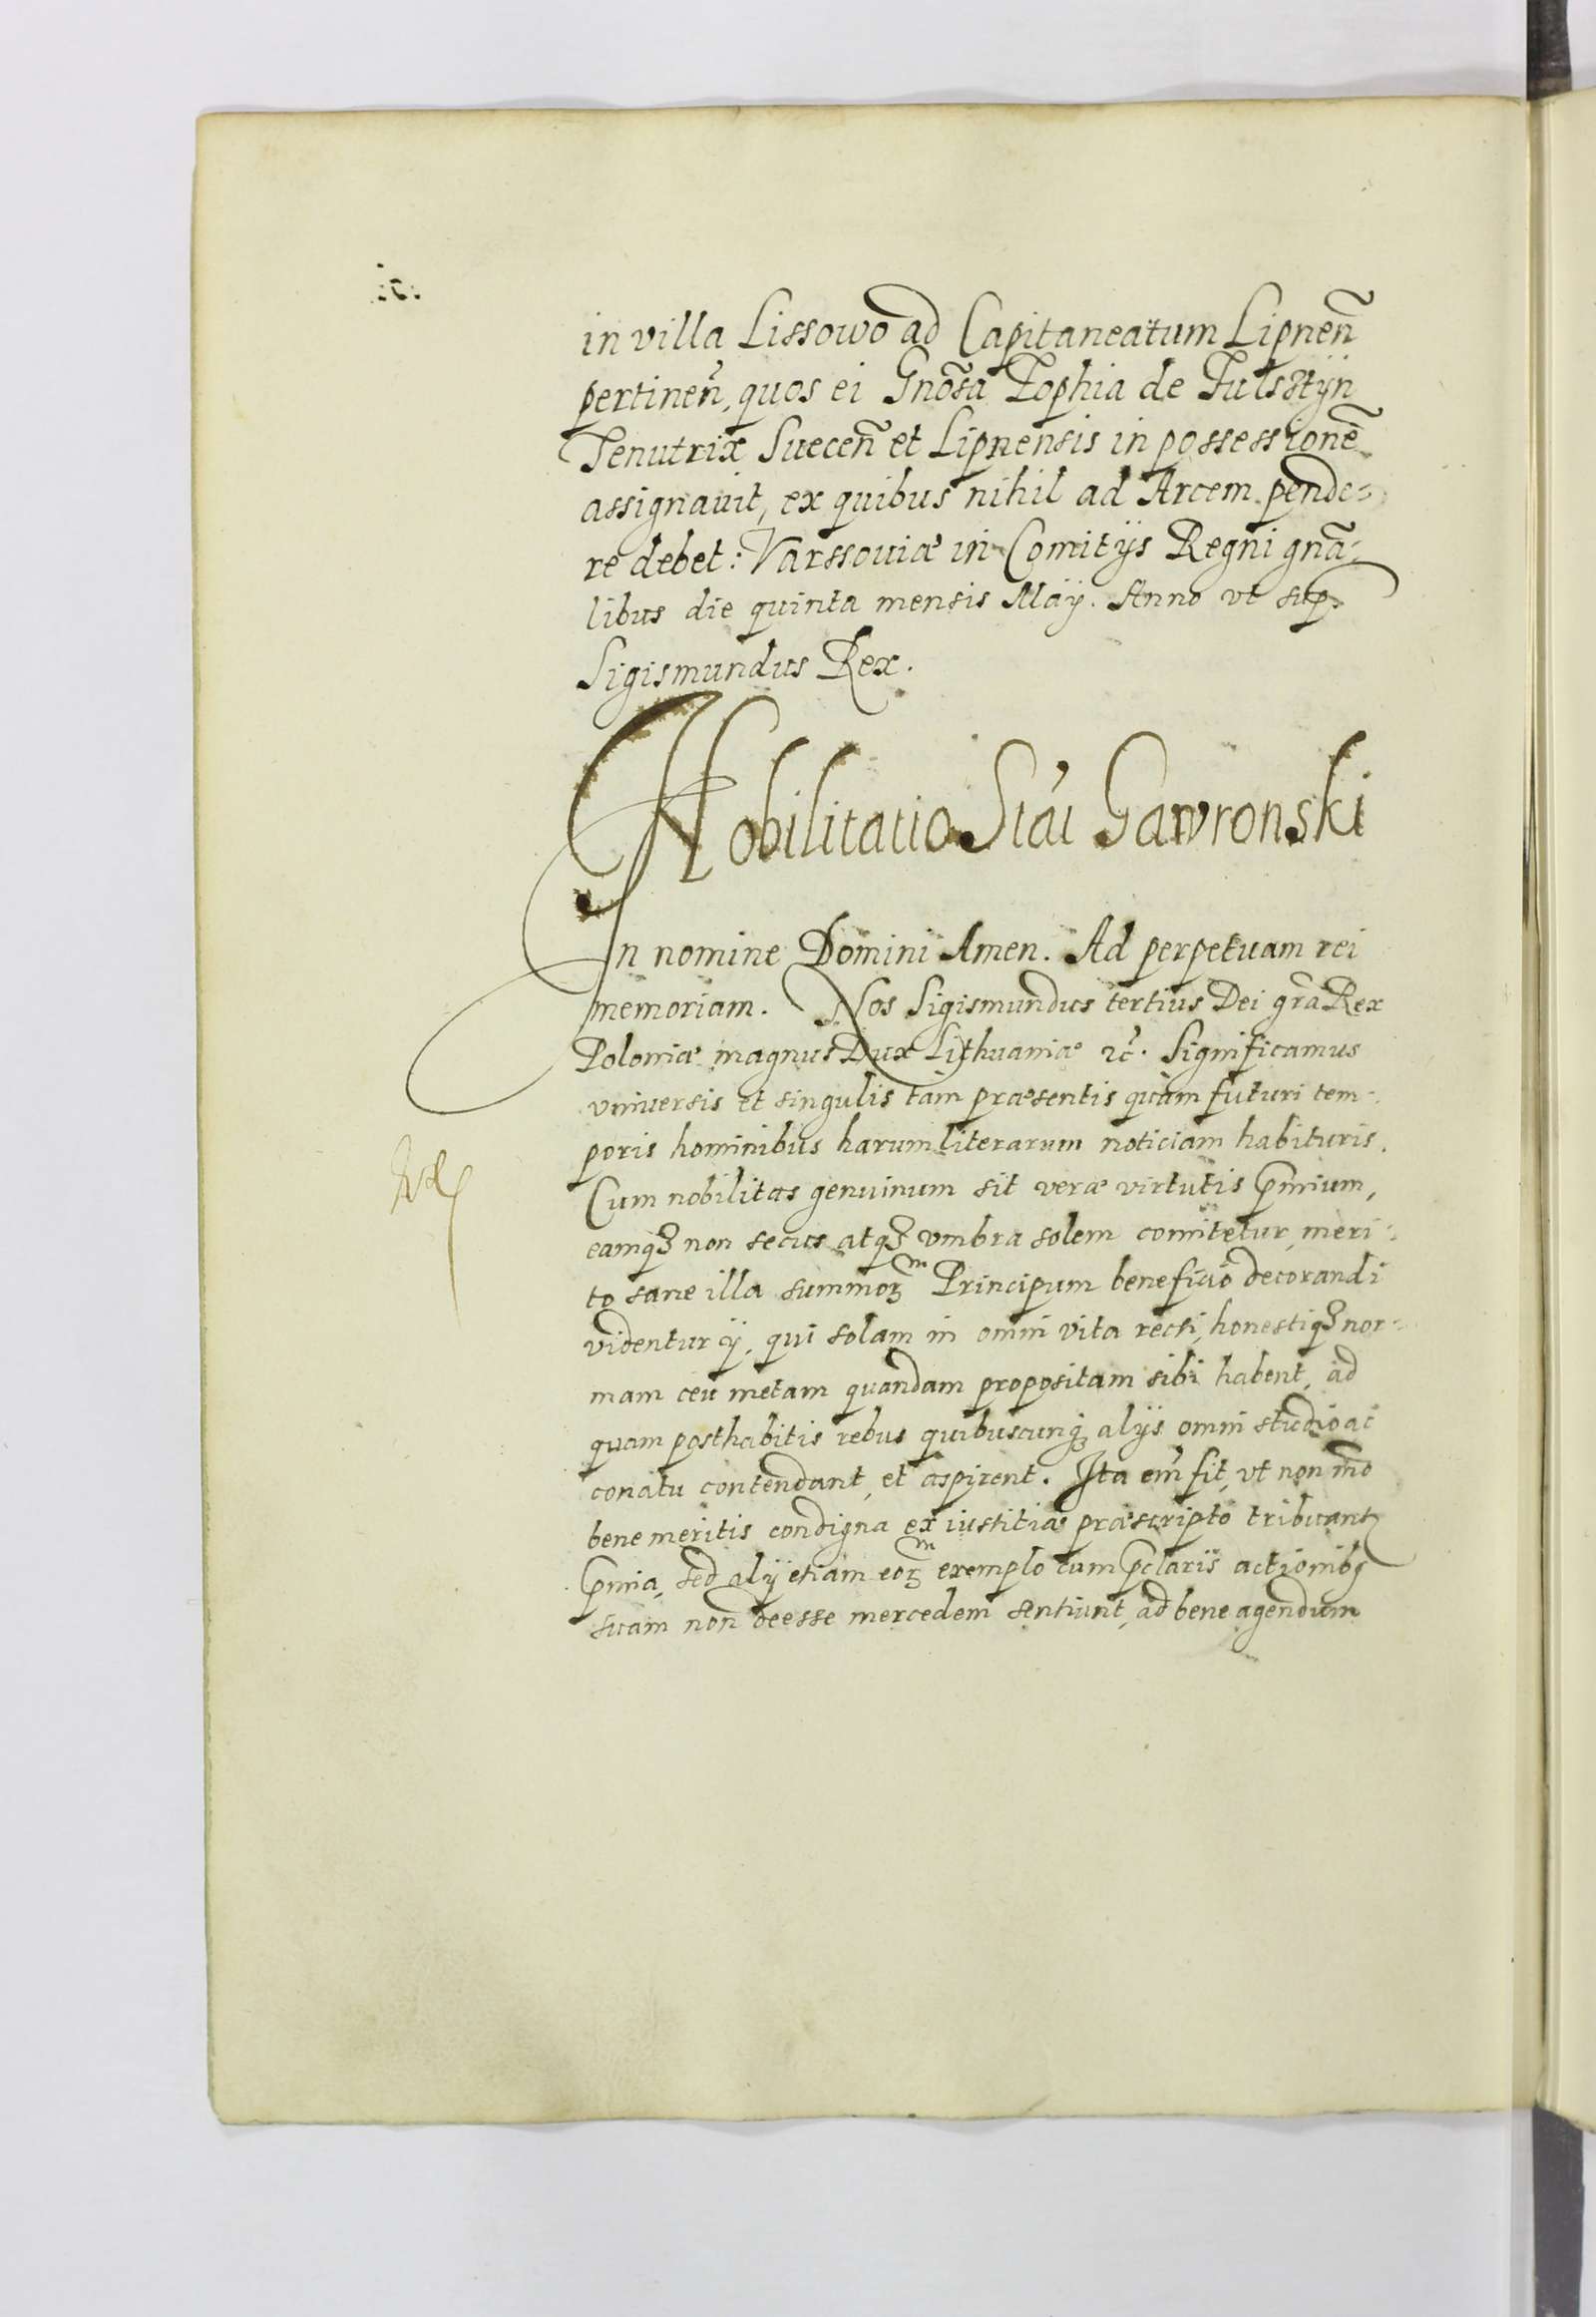 in villa Lissowo ad Capitaneatum Lipnen̄
pertinen̄, quos ei Gnōsa Zophia de Fulsstÿn
Tenutrix Suecen̄ et Lipnensis in possessionē
assignauit, ex quibus nihil ad Arcem pende=
re debet: Varssouiæ in Comitÿs Regni gnā=
libus die quinta mensis Maÿ. Anno vt sup.
Sigismundus Rex.
Nobilitatio Stāi Gawronski
In nomine Domini Amen. Ad perpetuam rei
memoriam. Nos Sigismundus tertius Dei grā Rex
Poloniæ magnus Dux Lithuaniæ ꝛc̄. Significamus
vniuersis et singulis tam præsentis quàm futuri tem-
poris hominibus harum literarum noticiam habituris.
Cum nobilitas genuinum sit veræ virtutis p̄mium,
eamqꝫ non secus atqꝫ vmbra solem comitetur, meri-
to sane illa summoꝝ Principum beneficio decorandi
videntur ÿ, qui solam in omni vita recti, honestiqꝫ nor-
mam ceu metam quandam propositam sibi habent, ad
quam posthabitis rebus quibuscunqꝫ alÿs omni studio ac
conatu contendant, et aspirent. Ita em̄ fit, vt non mō
bene meritis condigna ex iustitiæ præscripto tribuantꝛ
p̄mia, sed alÿ etiam eoꝝ exemplo cum p̄claris actionibꝫ
suam non deesse mercedem sentiunt, ad bene agendum